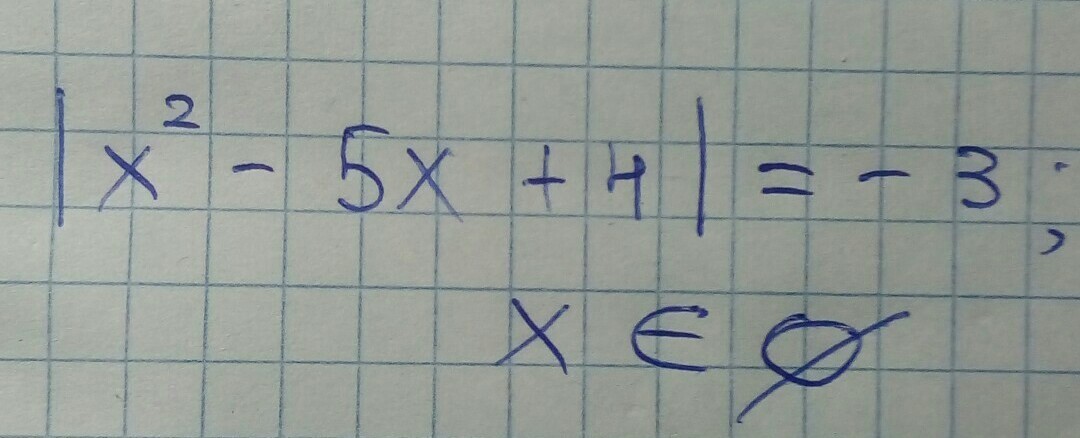 |x² - 5x + 4| = - 3;
x ∈ ∅